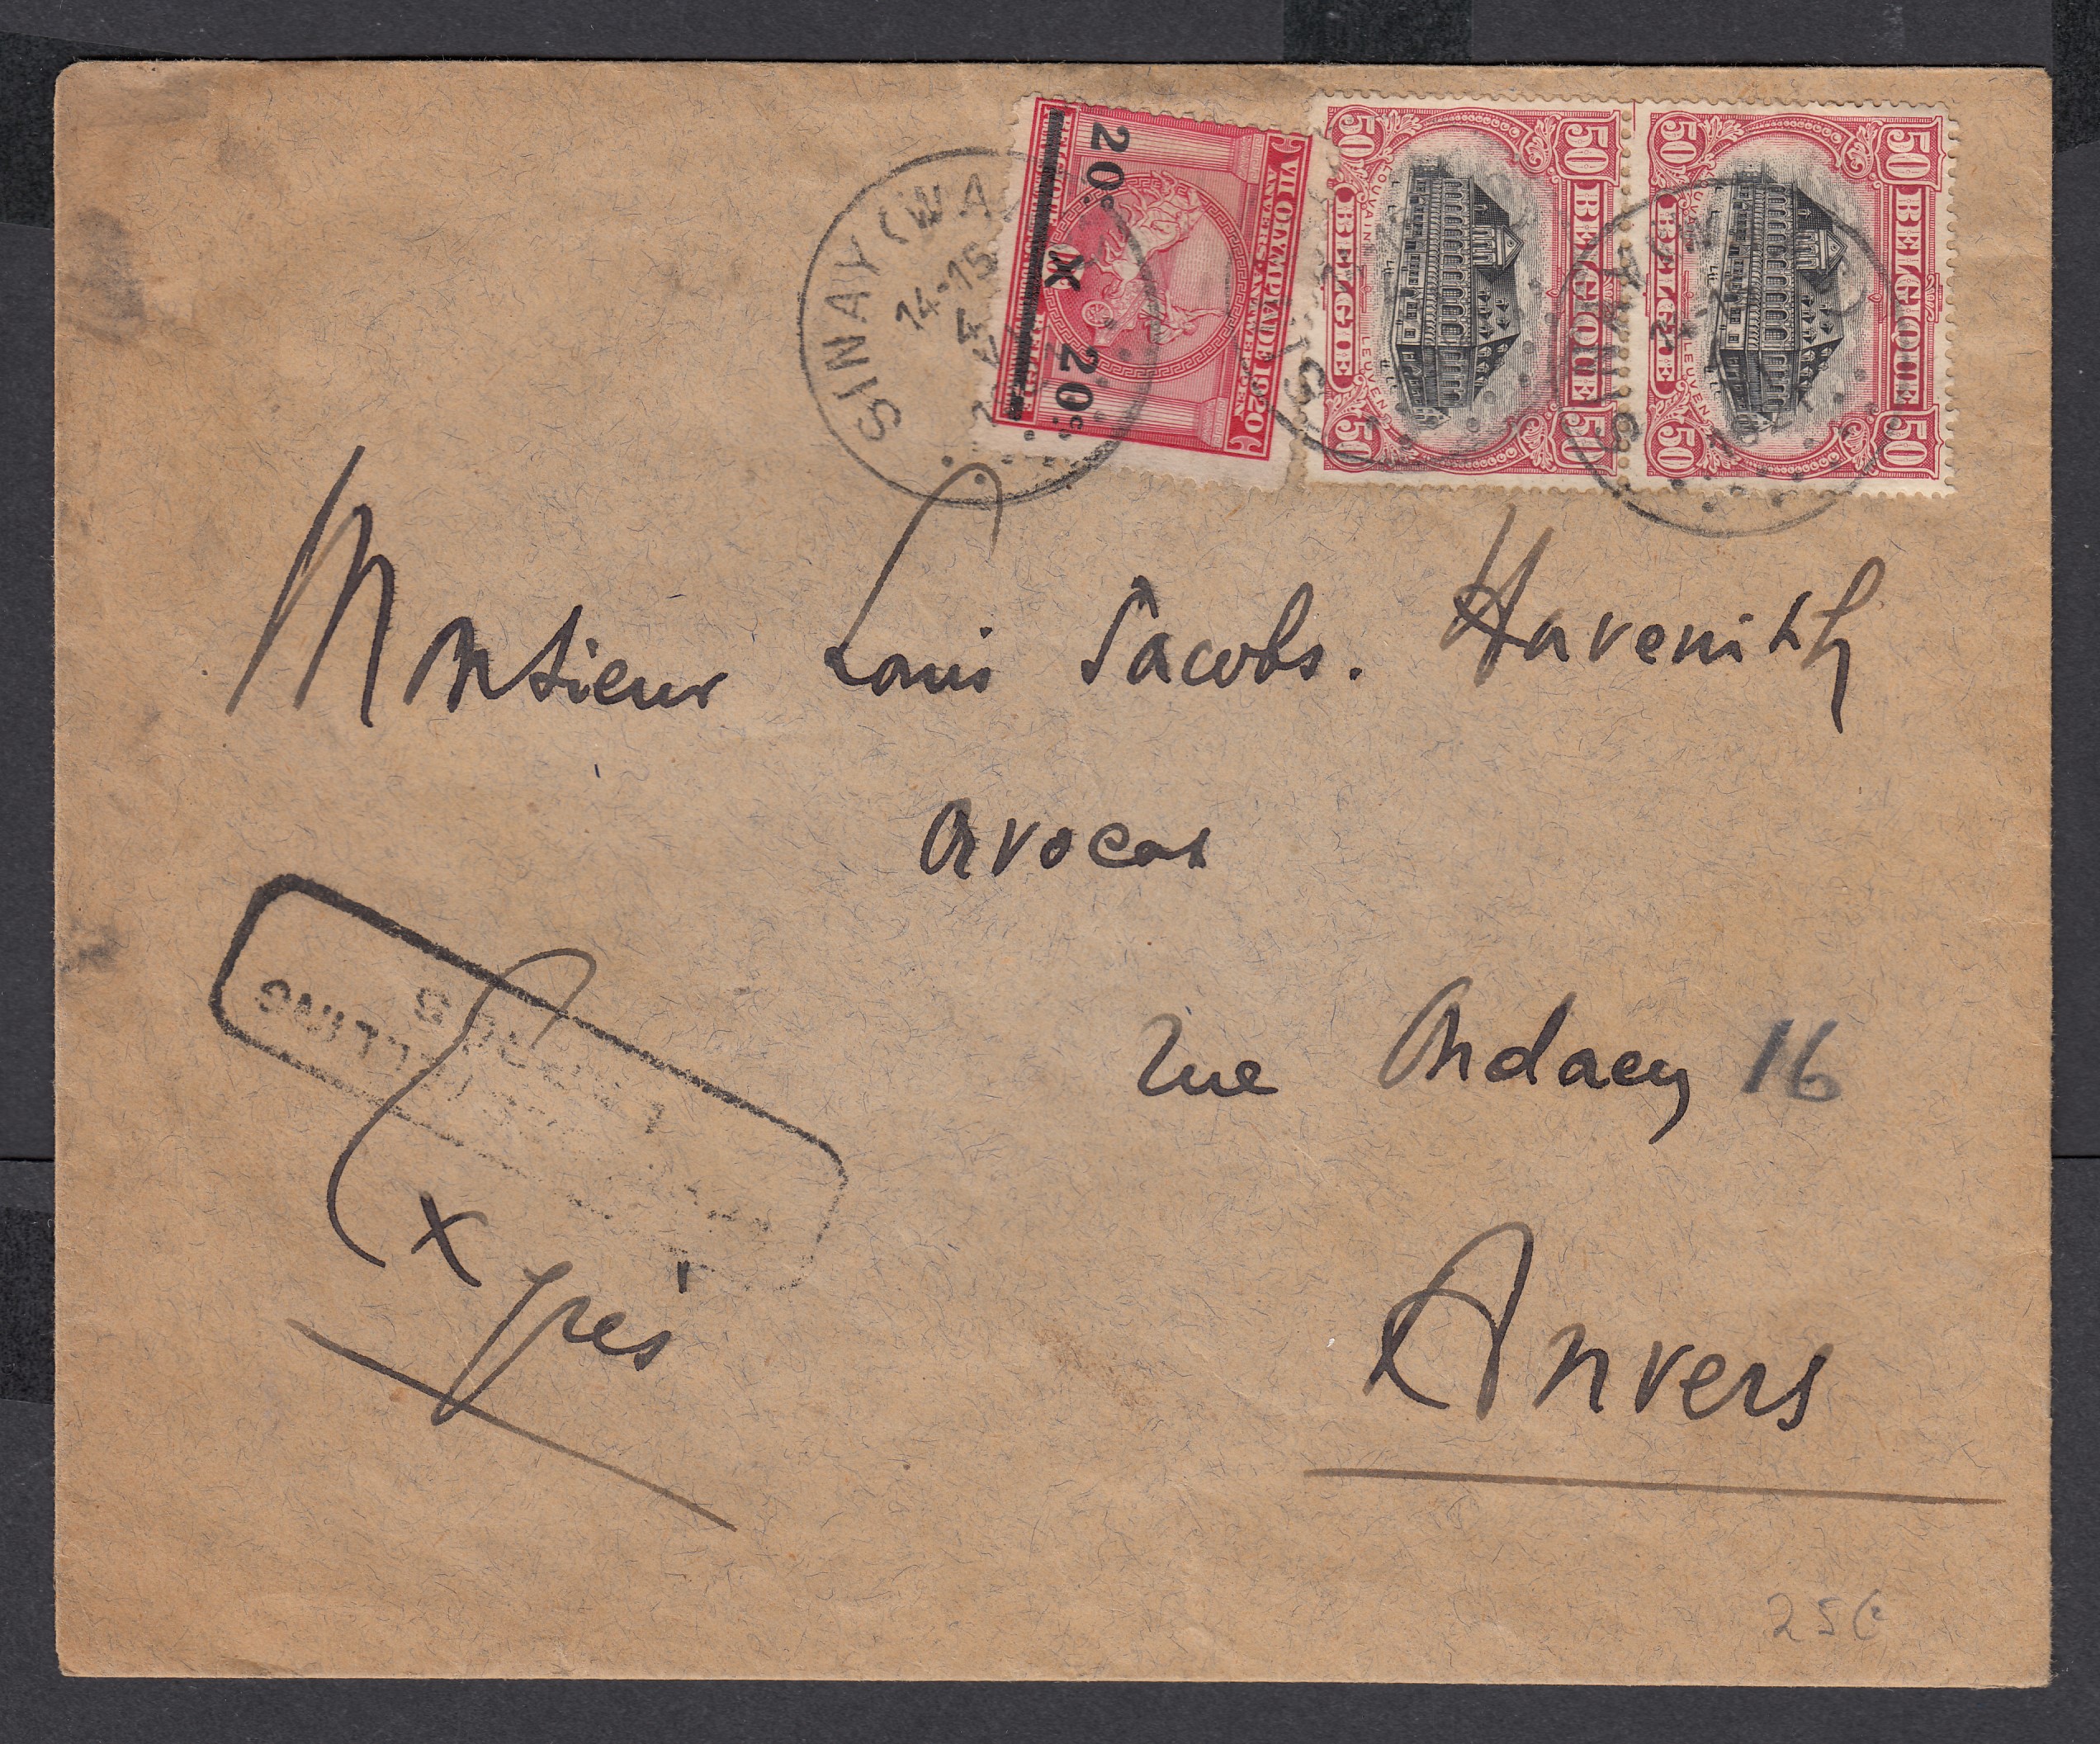 SINAY (WA
14-15
VIIe OLYMPIADE 1920
ANVERS ANTWERPEN
20c
20c
50 BELGIQUE 50
LOUVAIN LEUVEN
50 BELGIE 50
50 BELGIQUE 50
LOUVAIN LEUVEN
50 BELGIE 50
Monsieur Louis Jacobs. Havenith
avocat
rue Ondaen 16
Anvers
Exprès
25€